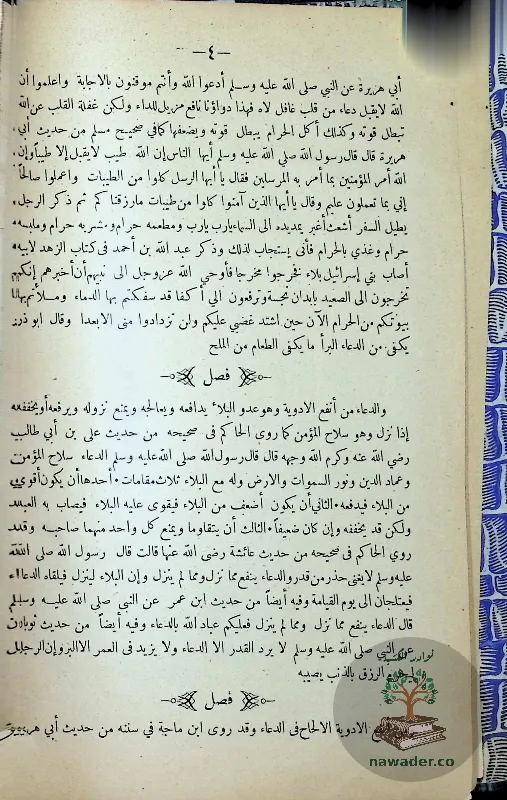 —٤—
أبي هريرة عن النبي صلى الله عليه وسلم أدعوا الله وأنتم موقنون بالاجابة واعلموا أن
الله لايقبل دعاء من قلب غافل لاه فهذا دواؤنا نافع مزيل للداء ولكن غفلة القلب عن الله
تبطل قوته وكذلك أكل الحرام يبطل قوته ويضعفها كما في صحيح مسلم من حديث أبي
هريرة قال قال رسول الله صلى الله عليه وسلم أيها الناس إن الله طيب لايقبل إلا طيباً وإن
الله أمر المؤمنين بما أمر به المرسلين فقال يا أيها الرسل كلوا من الطيبات واعملوا صالحاً
إني بما تعملون عليم وقال يا أيها الذين آمنوا كلوا من طيبات مارزقناكم ثم ذكر الرجل
يطيل السفر أشعث أغبر يمديديه الى السماء يارب يارب ومطعمه حرام ومشربه حرام وملبسه
حرام وغذي بالحرام فأنى يستجاب لذلك وذكر عبد الله بن أحمد في كتاب الزهد لابيه
أصاب بني إسرائيل بلاء فخرجوا مخرجا فأوحى الله عز وجل الى نبيهم أن أخبرهم إنكم
تخرجون الى الصعيد بابدان نجسة وترفعون الي أكفا قد سفكتم بها الدماء وملأتم بها
بيوتكم من الحرام الآن حين اشتد غضبي عليكم ولن تزدادوا منى الابعدا وقال ابو ذر
يكفى من الدعاء البرأ مايكفى الطعام من الملح
فصل
والدعاء من أنفع الادوية وهو عدو البلاء يدافعه ويعالجه ويمنع نزوله ويرفعه أو يخففه
إذا نزل وهو سلاح المؤمن كما روى الحاكم فى صحيحه من حديث على بن أبي طالب
رضي الله عنه وكرم الله وجهه قال قال رسول الله صلى الله عليه وسلم الدعاء سلاح المؤمن
وعماد الدين ونور السموات والارض وله مع البلاء ثلاث مقامات • أحدها أن يكون أقوى
من البلاء فيدفعه • الثاني أن يكون أضعف من البلاء فيقوى عليه البلاء فيصاب به العبد
ولكن قد يخففه وإن كان ضعيفاً • الثالث أن يتقاوما ويمنع كل واحد منهما صاحبه وقد
روي الحاكم فى صحيحه من حديث عائشة رضى الله عنها قالت قال رسول الله صلى الله
عليه وسلم لا يغنى حذر من قدر والدعاء ينفع مما نزل ومما لم ينزل وإن البلاء لينزل فيلقاه الدعاء
فيعتلجان الى يوم القيامة وفيه أيضاً من حديث ابن عمر عن النبي صلى الله عليه وسلم
قال الدعاء ينفع مما نزل ومما لم ينزل فعليكم عباد الله بالدعاء وفيه أيضاً من حديث ثوبان
عن النبي صلى الله عليه وسلم لا يرد القدر الا الدعاء ولا يزيد فى العمر الا البر وإن الرجل
ليحرم الرزق بالذنب يصيبه
فصل
الادوية الالحاح فى الدعاء وقد روى ابن ماجة في سننه من حديث أبي هريرة
نوادر المكتبة
nawader.co